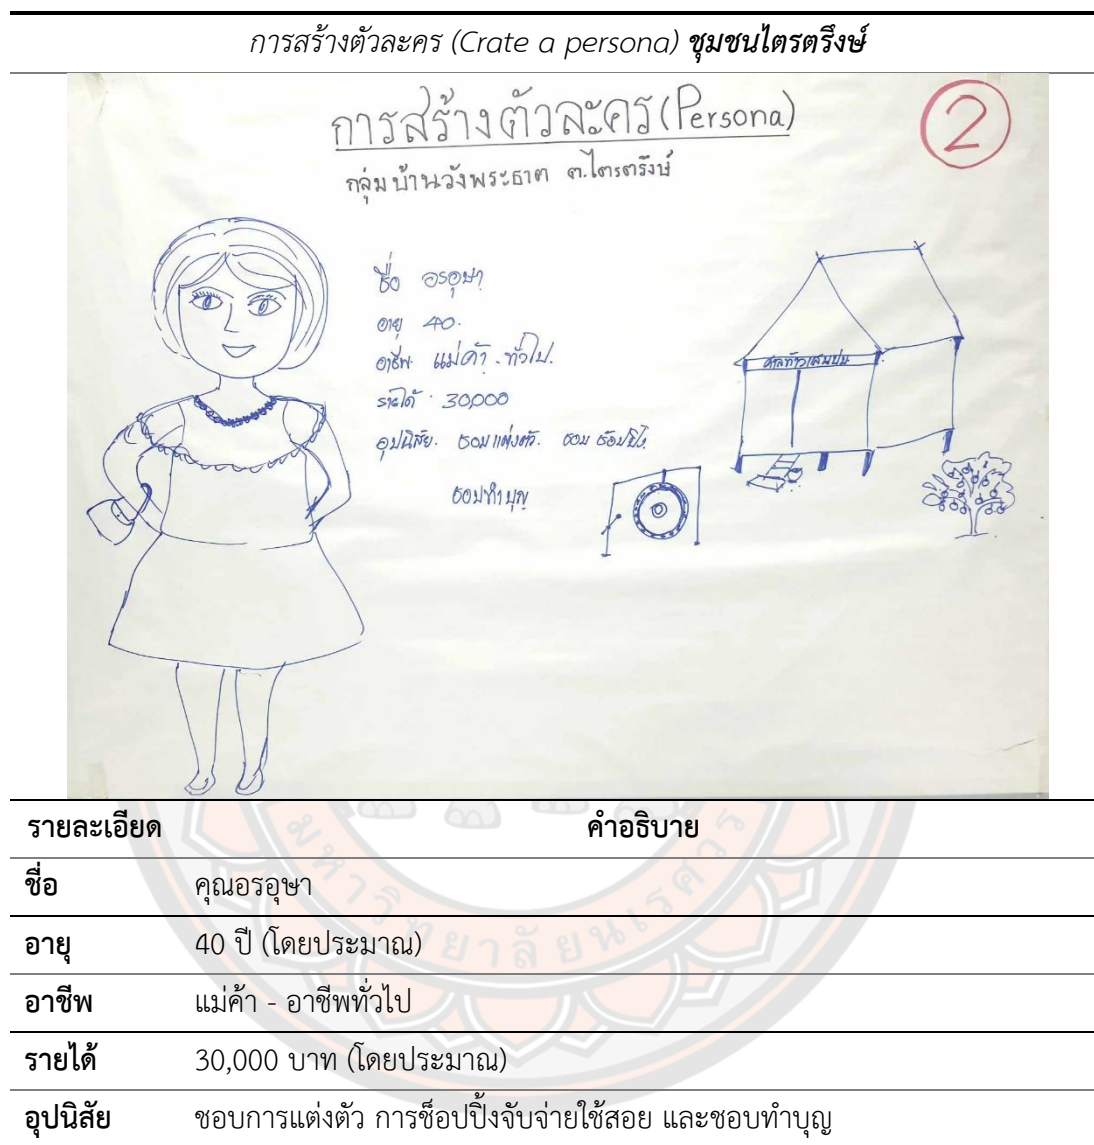 การสร้างตัวละคร (Crate a persona) ชุมชนไตรตรึงษ์
การสร้างตัวละคร (Persona)
2
กลุ่มบ้านวังพระธาตุ ต.ไตรตรึงษ์
ชื่อ อรอุษา
อายุ 40.
อาชีพ แม่ค้า - ทั่วไป.
รายได้ 30,000
อุปนิสัย. ชอบแต่งตัว. ชอบ ช้อปปิ้ง.
ชอบทำบุญ
ศาลท้าวแสนปม
รายละเอียด คำอธิบาย
ชื่อ คุณอรอุษา
อายุ 40 ปี (โดยประมาณ)
อาชีพ แม่ค้า - อาชีพทั่วไป
รายได้ 30,000 บาท (โดยประมาณ)
อุปนิสัย ชอบการแต่งตัว การช็อปปิ้งจับจ่ายใช้สอย และชอบทำบุญ
มหาวิทยาลัยนเรศวร